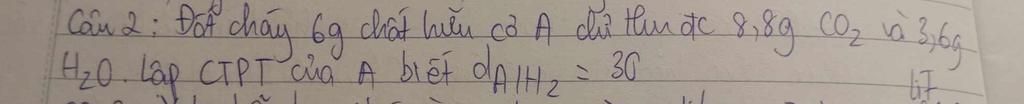 Câu 2: Đốt cháy 6g chất hữu cơ A chỉ thu đc 8,8g CO2 và 3,6g
H2O. Lập CTPT của A biết dA/H2 = 30